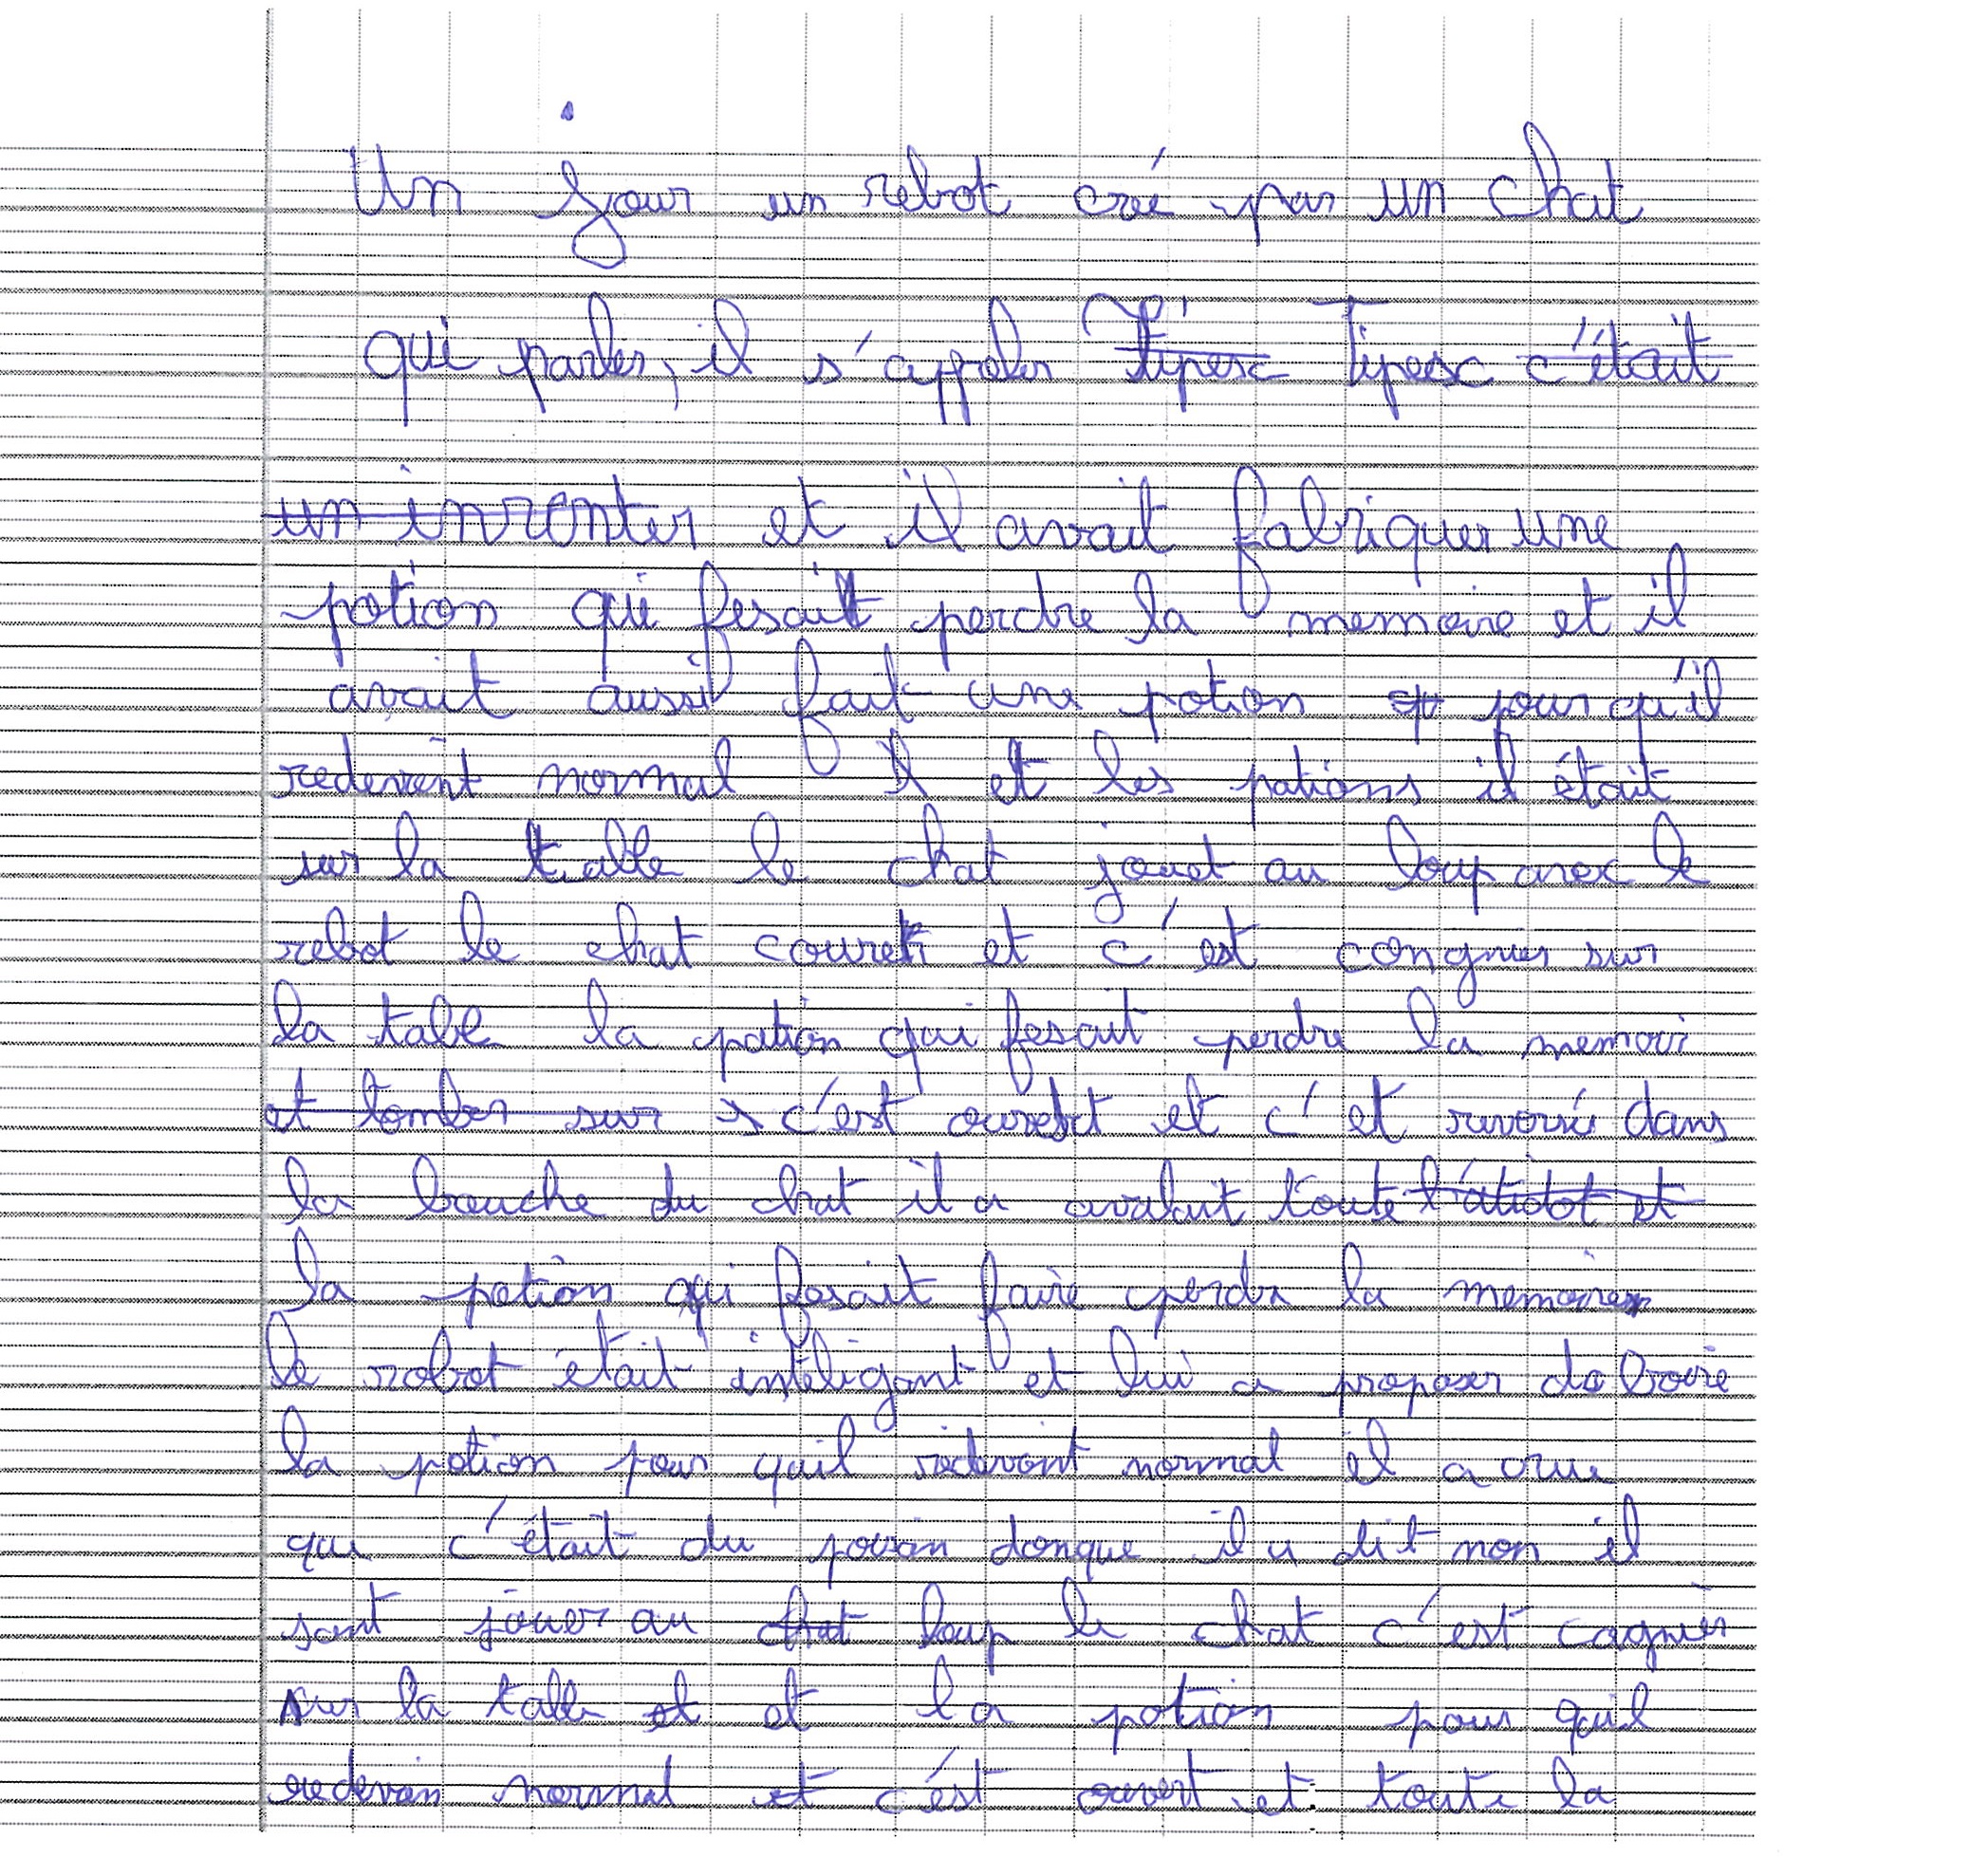 Un jour un rebot créé par un chat
qui parler, il s'appeler Tiperc Tiperc c'était
un invronter et il avait fabriquer une
potion qui fesait perdre la memoire et il
avait aussi fait une potion pour qu'il
redevent normal et les potions il était
sur la table le chat jouet au loup avec le
rebot le chat couret et c'est congnier sur
la table la potion qui fesait perdre la memoir
et tomber sur c'est ouvert et c'et dans
la bouche du chat il a avalait toute l'atidot et
la potion qui fesait faire perdre la memoire
le robot était inteligent et lui a proposer de boire
la potion pour quil redevent normal il a crue
que c'était du poison donque il a dit non il
sont jouer au chat loup le chat c'est cagnier
sur la table et et la potion pour quil
redevein normal et c'est ouvert et toute la